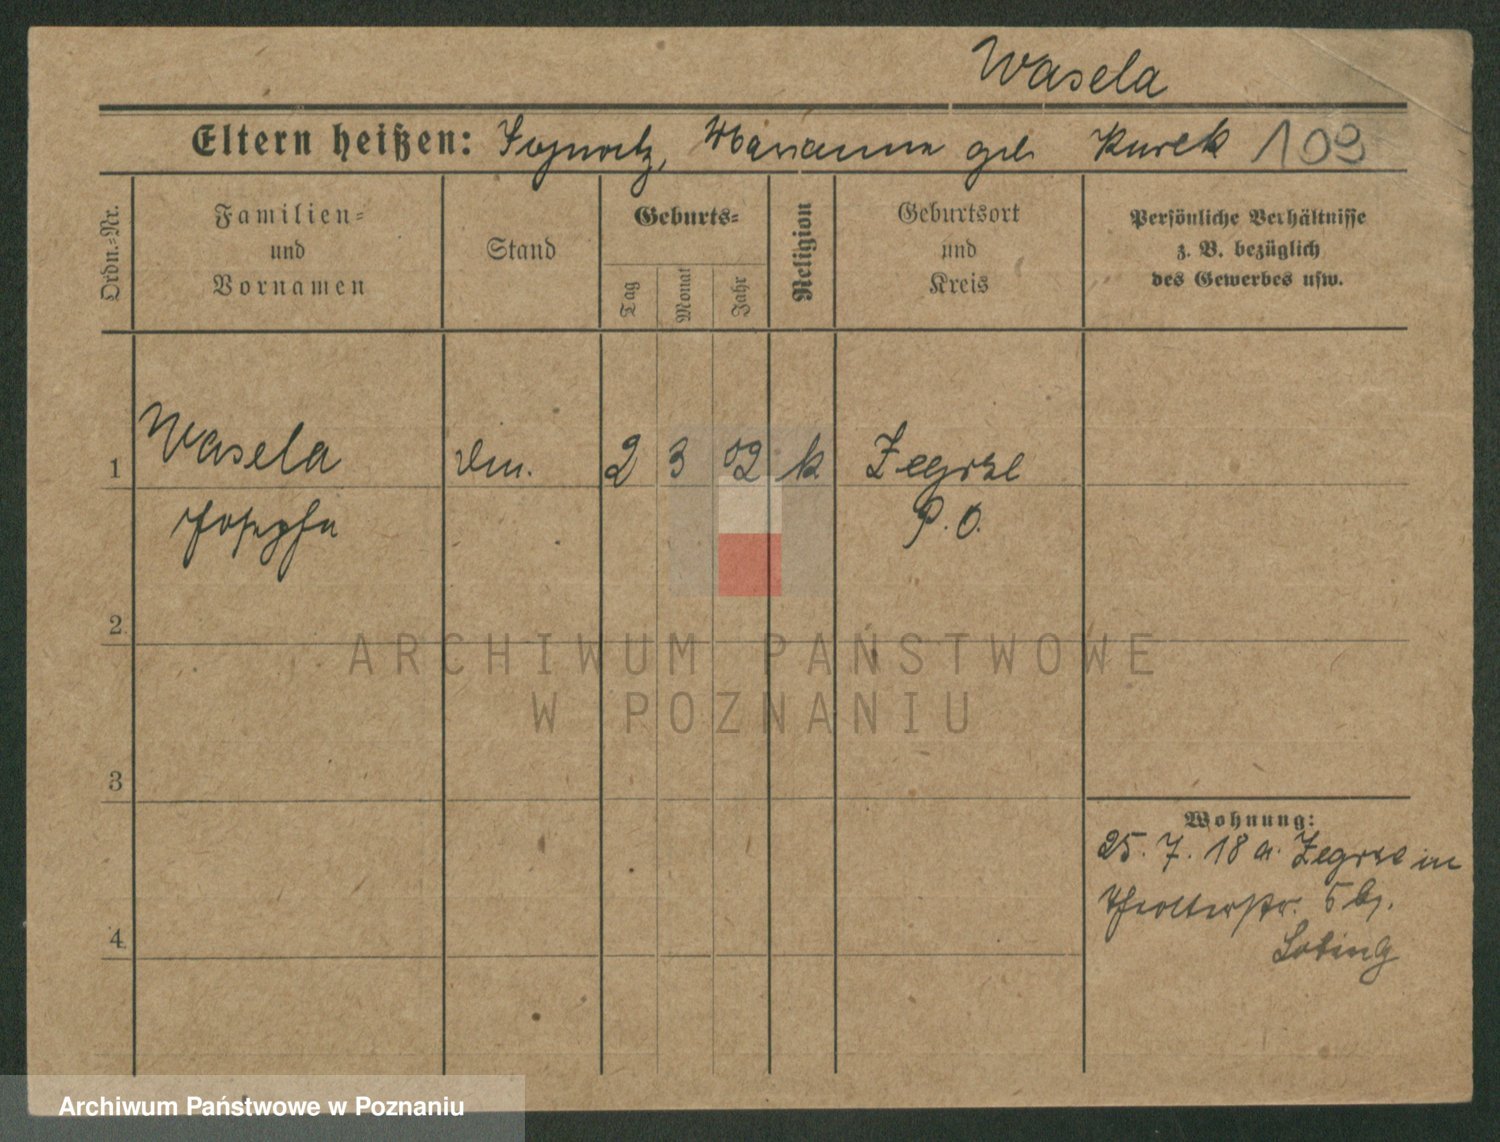 Wasela
Eltern heißen: Marianna geb Kurek 109
Ordn.-Nr.
Familien-
und
Vornamen
Stand
Geburts-
Tag
Monat
Jahr
Religion
Geburtsort
und
Kreis
Persönliche Verhältnisse
z. B. bezüglich
des Gewerbes usw.
1 Wasela 2 3 02 k Zegrze
Josepha P. O.
2
3
4
Wohnung:
25. 7. 18 a. Zegrze in
5 bj.
ARCHIWUM PAŃSTWOWE
W POZNANIU
Archiwum Państwowe w Poznaniu